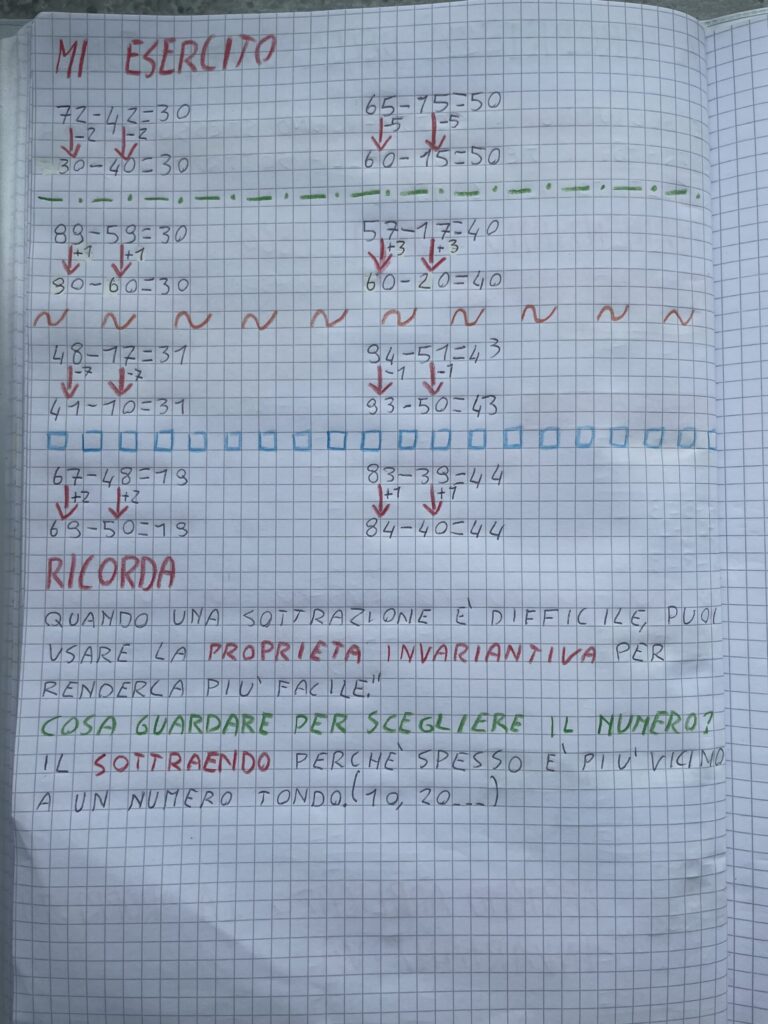 MI ESERCITO
72-42=30
-2 -2
30-40=30
65-15=50
-5 -5
60-15=50
89-59=30
+1 +1
90-60=30
57-17=40
+3 +3
60-20=40
48-17=31
-7 -7
41-10=31
94-51=43
-1 -1
93-50=43
67-48=19
+2 +2
69-50=19
83-39=44
+1 +1
84-40=44
RICORDA
QUANDO UNA SOTTRAZIONE E' DIFFICILE, PUOI
USARE LA PROPRIETA INVARIANTIVA PER
RENDERLA PIU' FACILE."
COSA GUARDARE PER SCEGLIERE IL NUMERO?
IL SOTTRAENDO PERCHE' SPESSO E' PIU' VICINO
A UN NUMERO TONDO.(10, 20...)